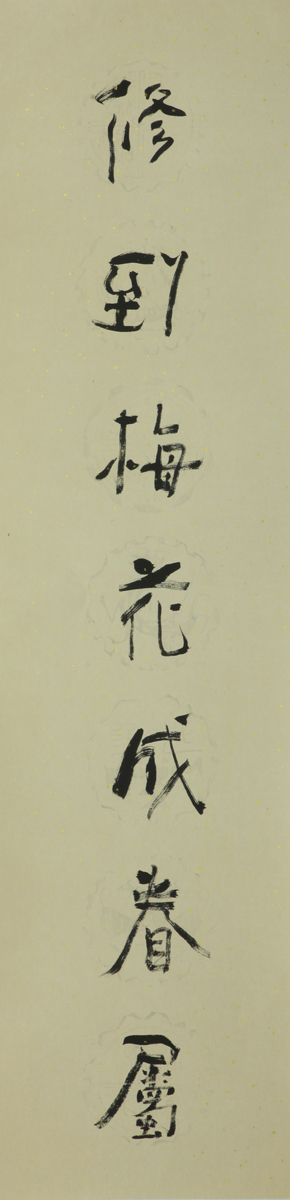 修到梅花成眷屬